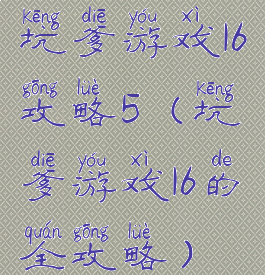 kēng diē yóu xì
坑爹游戏16
gōng lüè kēng
攻略5（坑
diē yóu xì de
爹游戏16的
quán gōng lüè
全攻略）